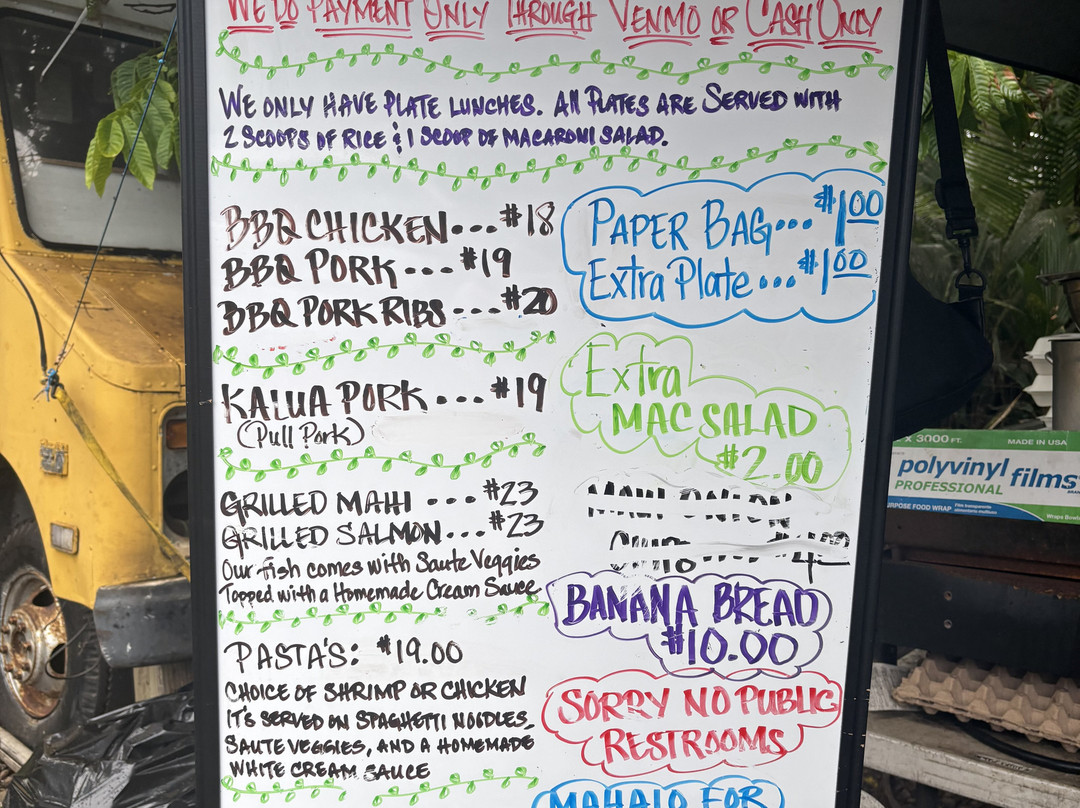 WE DO PAYMENT ONLY THROUGH VENMO OR CASH ONLY
WE ONLY HAVE PLATE LUNCHES. All PLATES ARE SERVED WITH
2 SCOOPS OF RICE & 1 SCOOP OF MACARONI SALAD.
BBQ CHICKEN...$18
BBQ PORK...$19
BBQ PORK RIBS...$20
KALUA PORK...$19
(Pull Pork)
GRILLED MAHI ...$23
GRILLED SALMON...$23
Our fish comes with Saute Veggies
Topped with a Homemade Cream Sauce
PASTA'S: $19.00
CHOICE OF SHRIMP OR CHICKEN
IT'S SERVED ON SPAGHETTI NOODLES
SAUTE VEGGIES, AND A HOMEMADE
WHITE CREAM SAUCE
PAPER BAG...$1.00
Extra Plate...$1.00
Extra
MAC SALAD
$2.00
MAUI ONION
BANANA BREAD
$10.00
SORRY NO PUBLIC
RESTROOMS
MAHALO FOR
X 3000 FT. MADE IN USA
polyvinyl films
PROFESSIONAL
PURPOSE FOOD WRAP